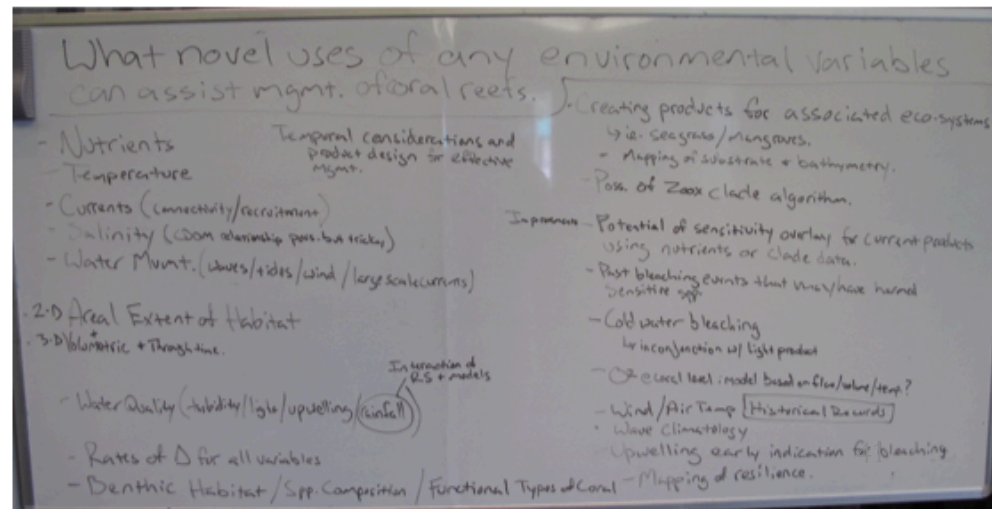 What novel uses of any environmental variables
can assist mgmt. of coral reefs.
- Nutrients
Temporal considerations and
product design for effective
mgmt.
- Temperature
- Currents (connectivity/recruitment)
- Salinity (CDOM relationship poss. but tricky)
- Water Mvmt. (waves/tides/wind/large scale currents)
2-D Areal Extent of Habitat
3-D Volumetric + Through time.
Interaction of
RS + models
- Water Quality (turbidity/light/upwelling/rainfall)
- Rates of Δ for all variables
- Benthic Habitat / Spp. Composition / Functional Types of Coral
- Creating products for associated eco-systems
↳ ie. seagrass/mangroves.
- Mapping of substrate + bathymetry.
- Poss. of Zoox clade algorithm.
- Potential of sensitivity overlay for current products
using nutrients or clade data.
- Past bleaching events that may/have harmed
sensitive spp.
- Cold water bleaching
↳ in conjunction w/ light product
- O2 @ coral level: model based on flow/volume/temp?
- Wind/Air Temp Historical Records
- Wave Climatology
- Upwelling early indication for bleaching
- Mapping of resilience.